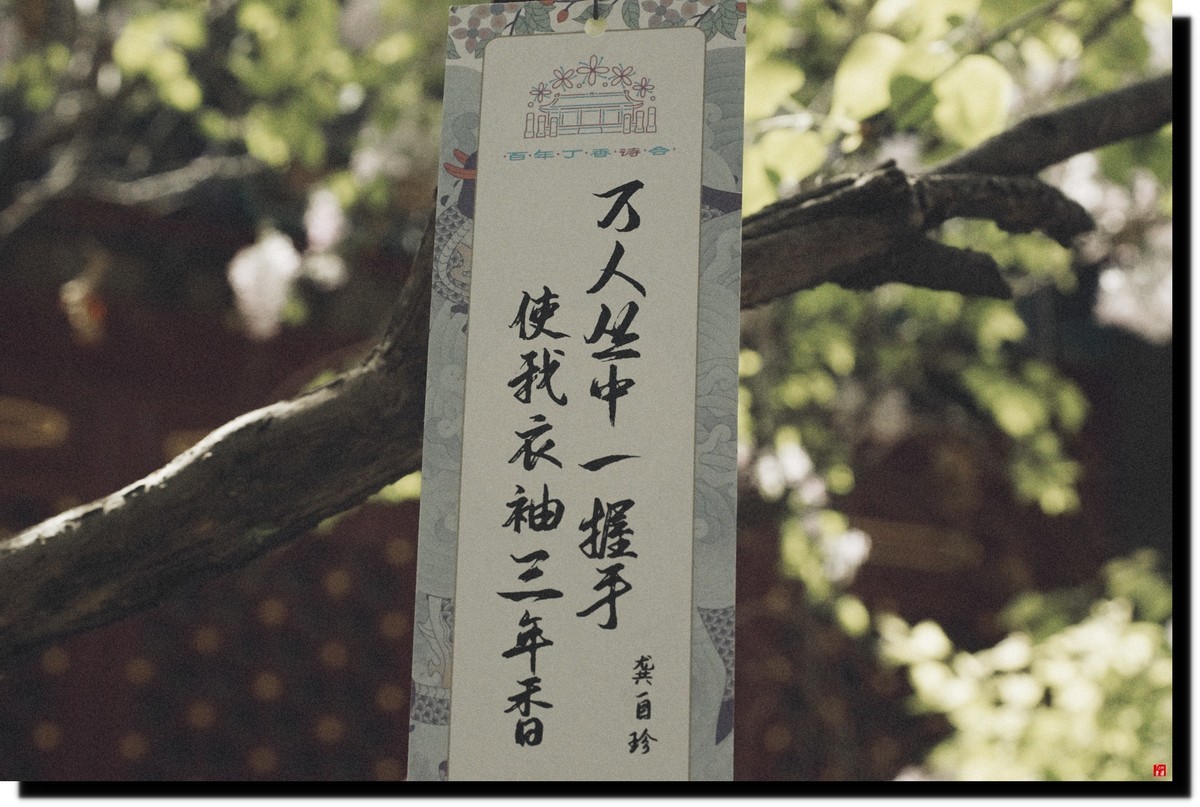 ·百·年·丁·香·诗·会·
万人丛中一握手
使我衣袖三年香
龚自珍